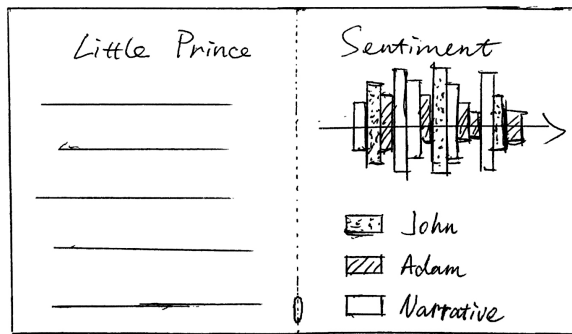 Little Prince
Sentiment
John
Adam
Narrative